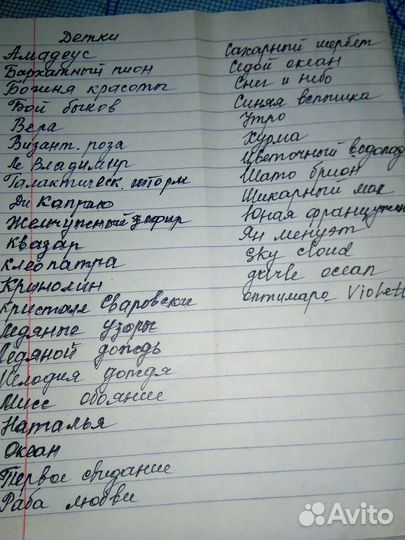 Детки
Амадеус
Бархатный пион
Богиня красоты
Бой быков
Вера
Визант. роза
Ле Владимир
Галактическ. шторм
Ди Каприо
Жемчужный зефир
Квазар
Клеопатра
Кринолин
Кристалл Сваровски
Ледяные узоры
Ледяной дождь
Мелодия дождя
Мисс обояние
Наталья
Океан
Первое свидание
Раба любви
Сахарный щербет
Седой океан
Снег и небо
Синяя
Утро
Хурма
Цветочный водопад
Шато брион
Шикарный мак
Юная француженка
Ян менуэт
Sky cloud
ocean
оптимара Violet
Avito